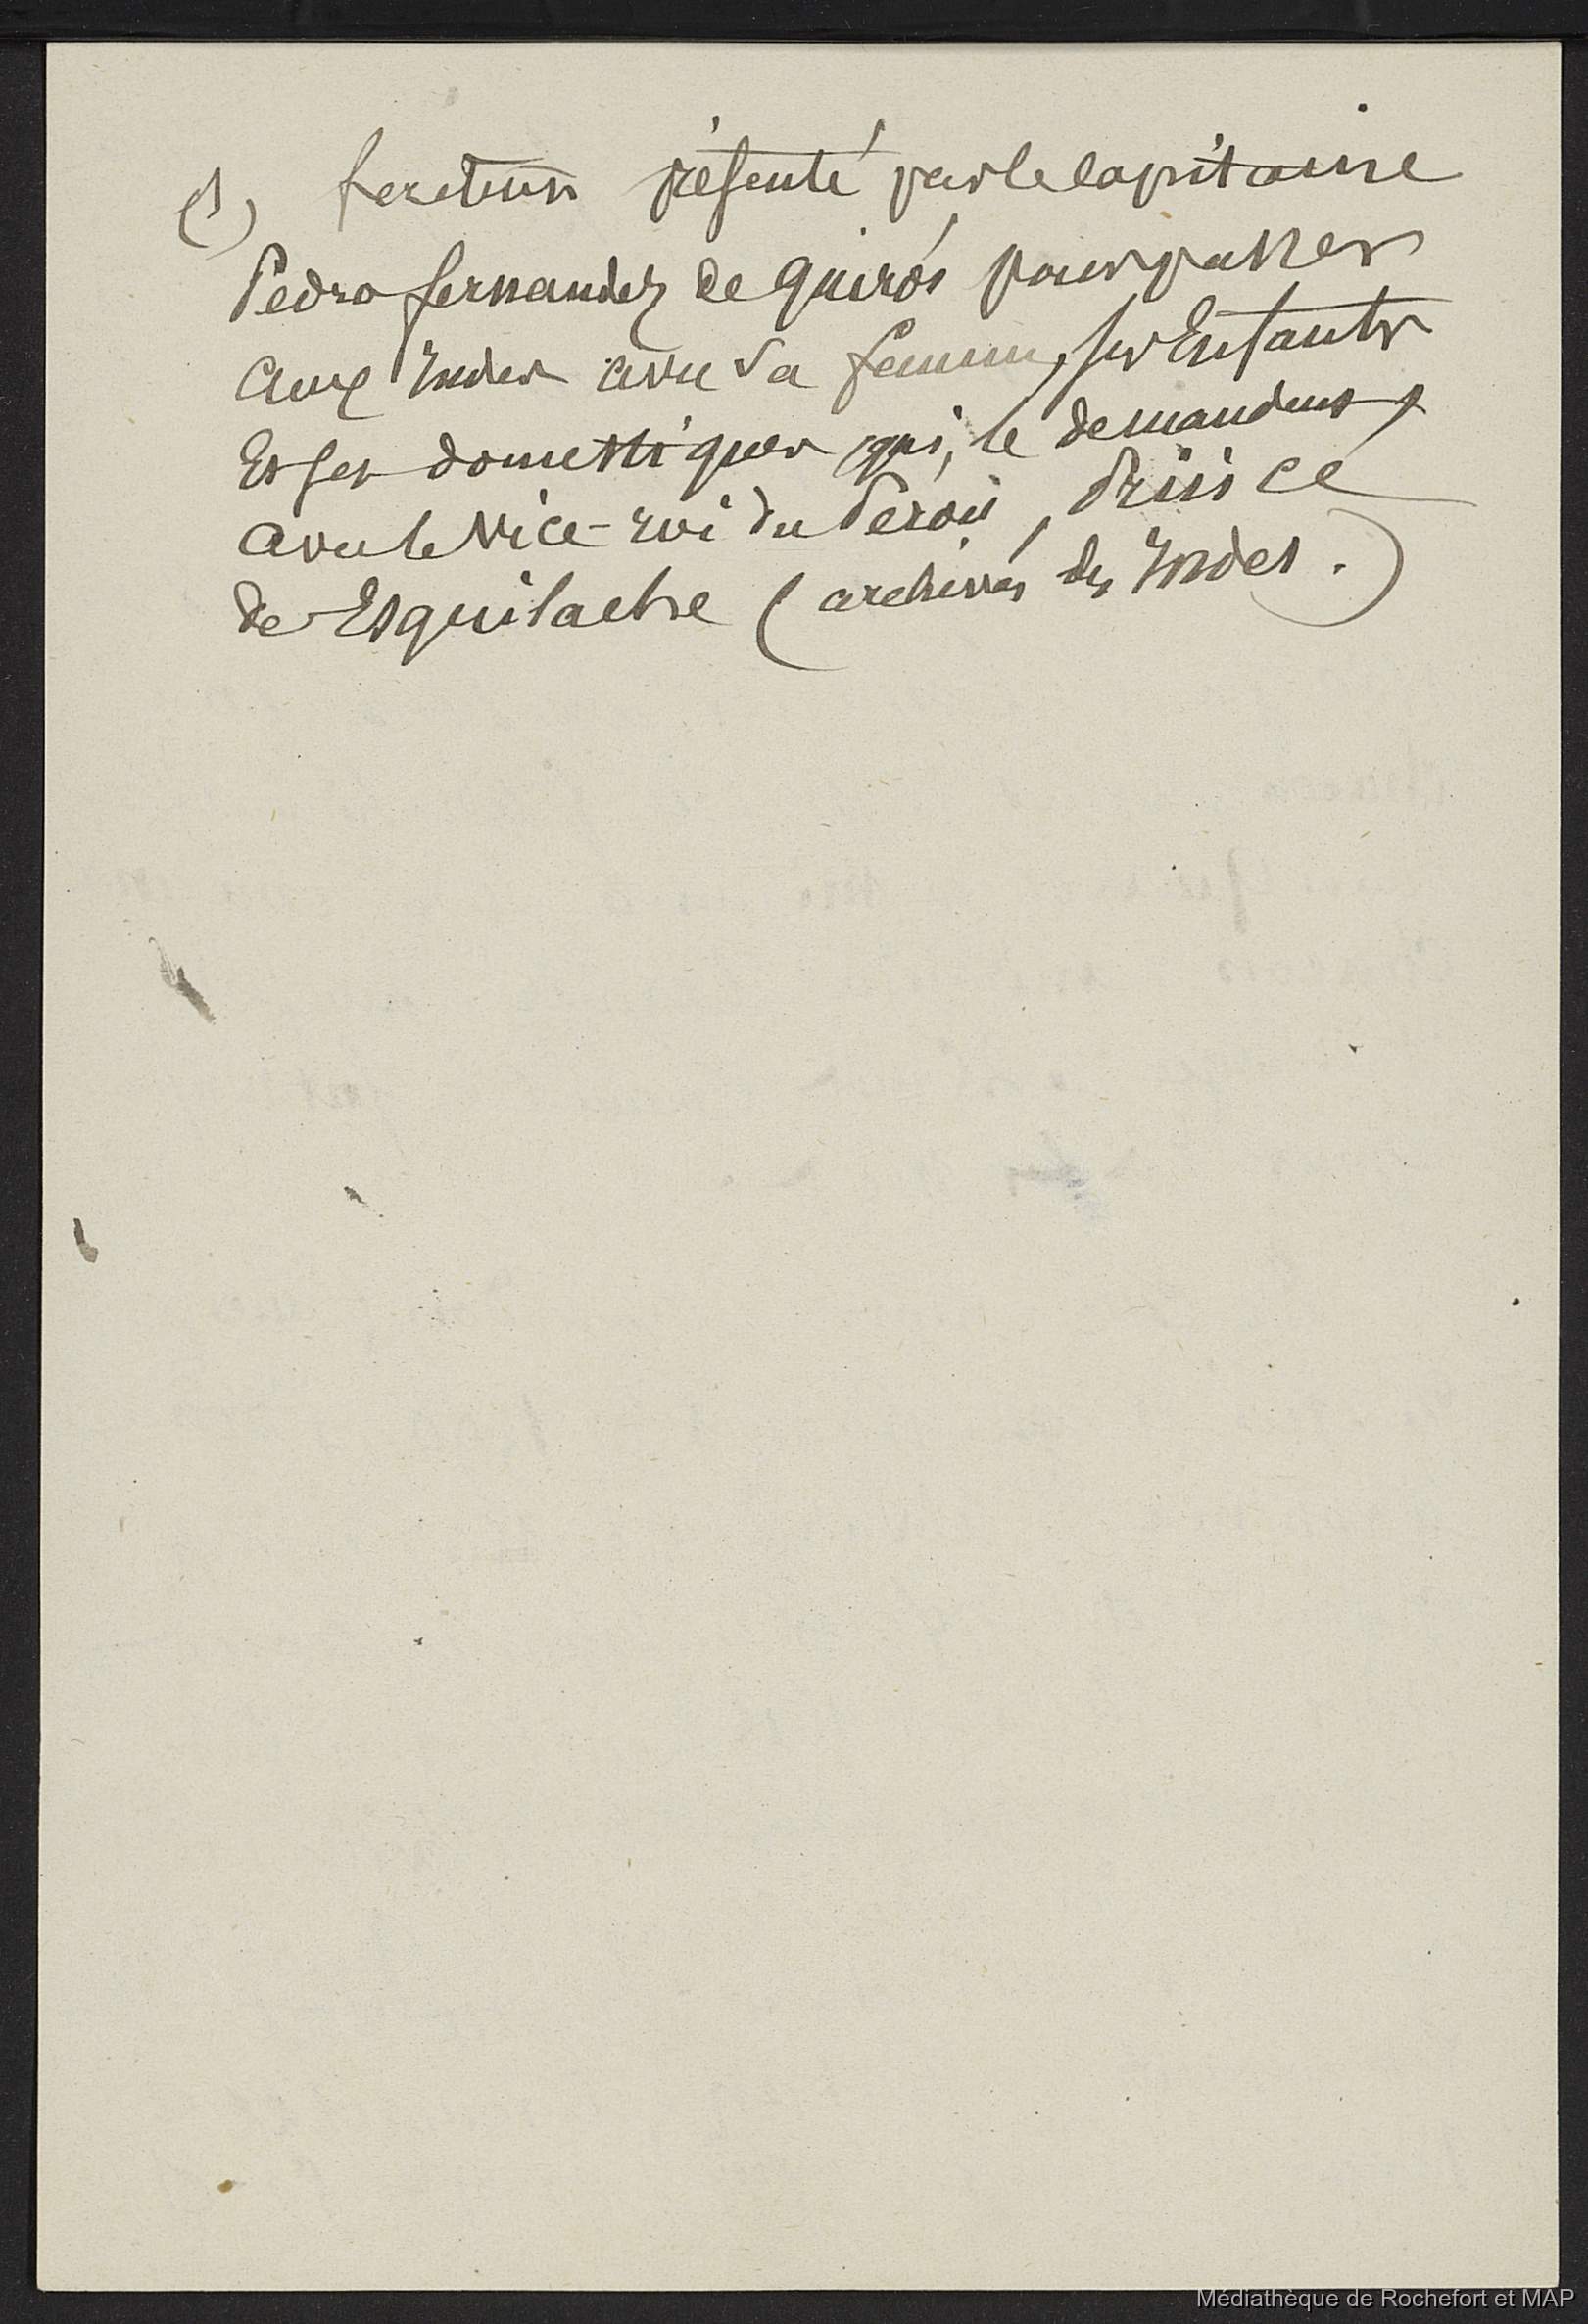 (1) présenté par le capitaine
Pedro fernandez de Quiros pour passer
aux Indes avec sa femme, ses Enfants
Et ses domestiques qui, le demandent,
avec le Vice-roi du Pérou, Prince
de Esquilache (archives des Indes.)
Médiathèque de Rochefort et MAP